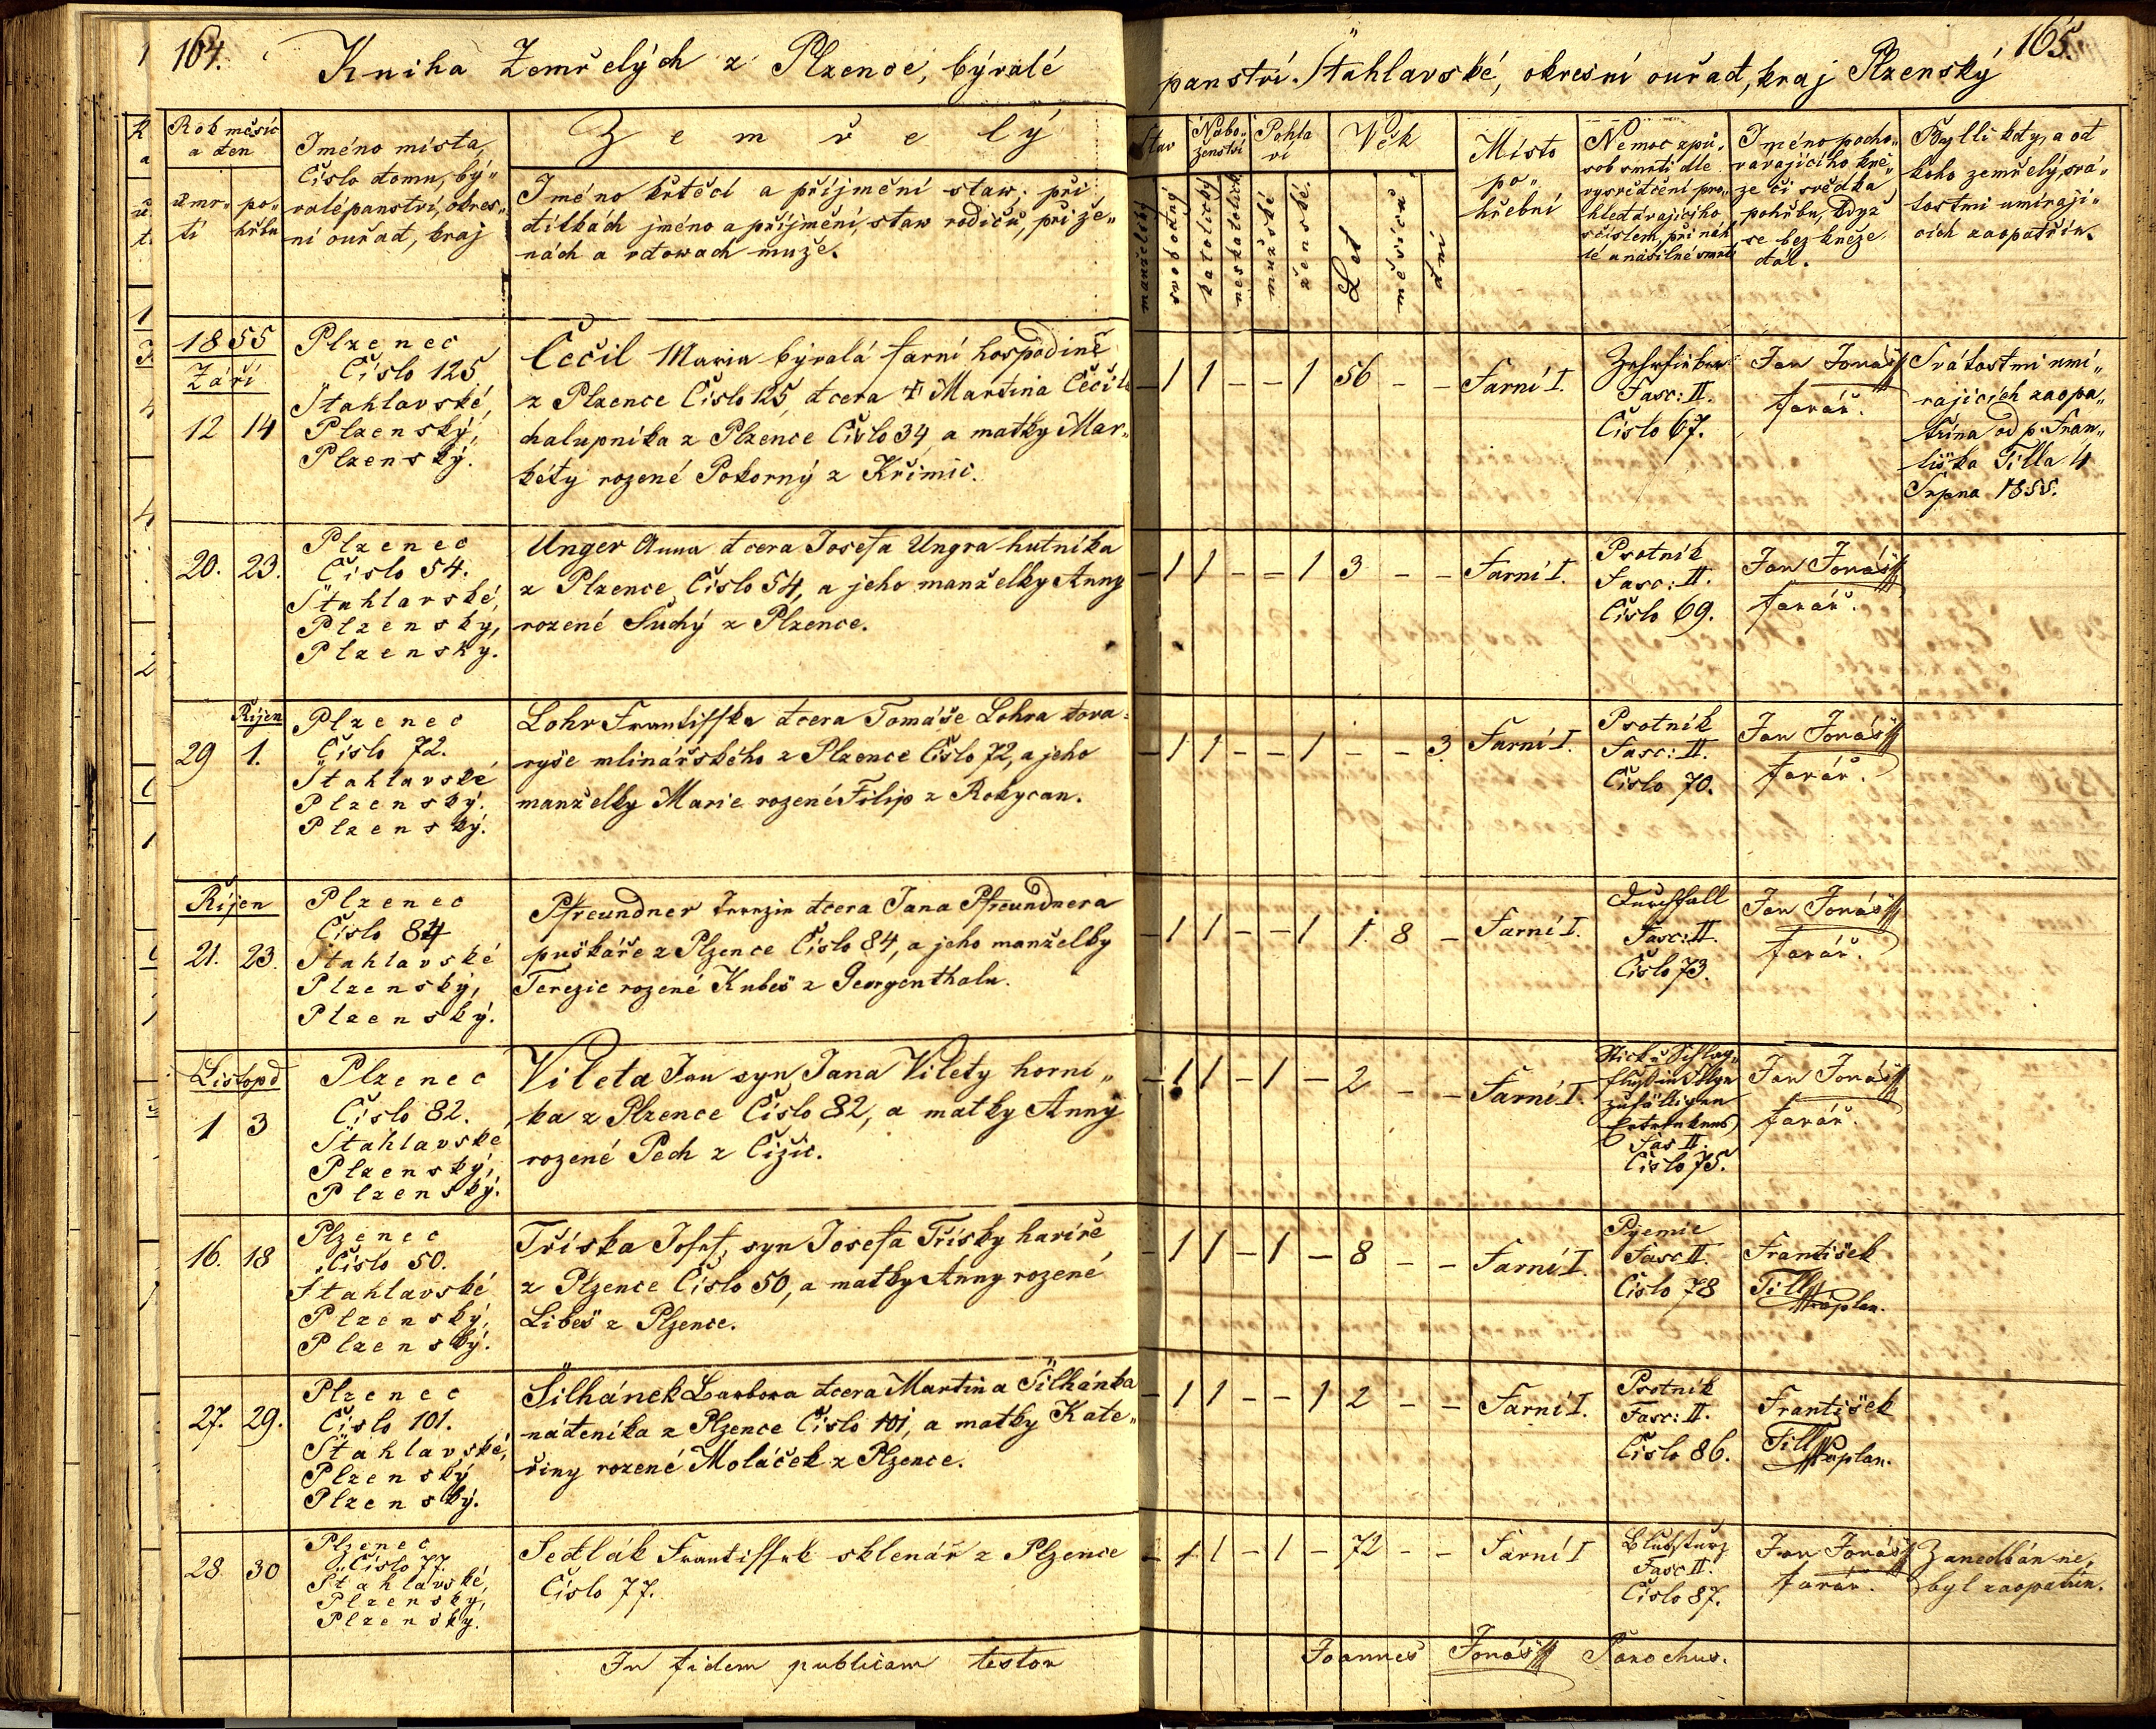 164.
Kniha Zemřelých z Plzence, býralé
panství Štáhlavské, okresní ouřad, kraj Plzenský
165.
Rok měsíc
a den
úmr„
tí
po„
hřbu
Jméno místa,
Číslo domu, bý„
valépanství, okres„
ní ouřad, kraj
Zemřelý
Jméno křtěcí a příjmění staw, při
dítkách jméno a příjmění, staw rodičů, při že„
nách a vdowach muže.
Stav
manželský
svobodný
Nábo„
ženství
katolický
neskatolick
Pohla
ví
mužské
ženské
Věk
Let
měsíců
dní
Místo
po„
hřební
Nemoc způ„
sob smrti dle
vysvědčení pro„
hledávajícího
sčíslem, při náh
lé a násilné smrti
Jméno pocho„
vávajícího kně„
ze či svědka
pohřbu, když
se bez kněze
dál.
Bylli kdy, a od
koho zemřelý, svá„
tostmi umírají„
cích zaopatřin.
1855
Září
12 14
Plzenec
Číslo 125
Štahlavské,
Plzenský,
Plzenský.
Čečil Maria býralá farní hospodině
z Plzence Číslo 125, dcera † Martina Čečil
chalupníka z Plzence Číslo 34, a matky Mar„
kéty rozené Pokorný z Křimic.
- 1 1 - - 1 56 - - Farní I.
Zehrfieber
Fasc: II.
Číslo 67.
Jan Jonáš
farář.
Svátostmi umí„
rajících zaopa„
třína od p. Fran„
tiška Tilla 4
Srpna 1855.
20. 23.
Plzenec
Číslo 54.
Štahlavské,
Plzenský,
Plzenský.
Unger Anna dcera Josefa Ungra hutníka
z Plzence Číslo 54, a jeho manželky Anny
rozené Suchý z Plzence.
- 1 1 - - 1 3 - - Farní I.
Psotník
Fasc: II.
Číslo 69.
Jan Jonáš
farář.
Říjen
29 1.
Plzenec
Číslo 72.
Štahlavské
Plzenský.
Plzenský.
Lohr Frantisska dcera Tomáše Lohra tova„
ryše mlinářského z Plzence Číslo 72, a jeho
manželky Marie rozené Filip z Rokycan.
- 1 1 - - 1 - - 3. Farní I.
Psotník
Fasc: II.
Číslo 70.
Jan Jonáš
farář.
Říjen
21. 23.
Plzenec
Číslo 84
Štahlavské
Plzenský,
Plzenský.
Pfreundner dcera Jana Pfreundnera
puškáře z Plzence Číslo 84, a jeho manželky
Terezie rozené Kubeš z Georgenthalu.
- 1 1 - - 1 1 8 - Farní I.
Durchfall
Fasc: II.
Číslo 73.
Jan Jonáš
farář.
Listopd
1 3
Plzenec
Číslo 82.
Štahlavské
Plzenský,
Plzenský.
Vileta Jan syn Jana Vilety horní„
ka z Plzence Číslo 82, a matky Anny
rozené Pech z Čižic.
- 1 1 - 1 - 2 - - Farní I.
Stick u Schlag„
fluß in Folge
zufälligen
Ertrinkens
Fas II.
Číslo 75.
Jan Jonáš
farář.
16. 18
Plzenec
Číslo 50.
Štahlavské
Plzenský,
Plzenský.
Tříska Josef, syn Josefa Třísky havíře,
z Plzence Číslo 50, a matky Anny rozené
Libeš z Plzence.
- 1 1 - 1 - 8 - - Farní I.
Pyemie
Fasc II.
Číslo 78
František
Till
Kaplan.
27. 29.
Plzenec
Číslo 101.
Štahlavské,
Plzenský
Plzenský.
Šilhánek Barbora dcera Martina Šilhánka
nádeníka z Plzence Číslo 101, a matky Kate„
řiny rozené Moláček z Plzence.
- 1 1 - - 1 2 - - Farní I.
Psotník
Fasc: II.
Číslo 86.
František
Till
Kaplan.
28. 30
Plzenec
Číslo 77.
Štahlavské,
Plzenský,
Plzenský.
Sedlák Frantissek sklenář z Plzence
Číslo 77.
- 1 1 - 1 - 72 - - Farní I
Blutsturz
Fasc II.
Číslo 87.
Jan Jonáš
farář.
Zanedbán ne„
byl zaopatřin.
In fidem publicam testor
Joannes Jonáš Parochus.